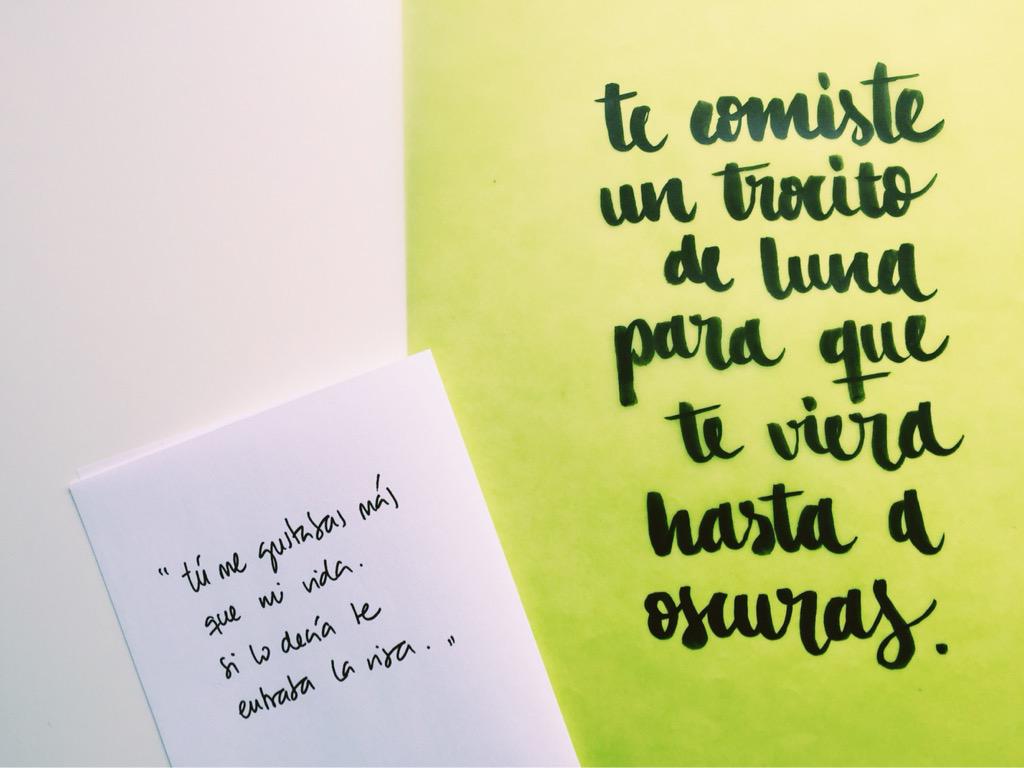 te comiste
un trocito
de luna
para que
te viera
hasta a
oscuras.
"tú me gustabas más
que mi vida.
si lo decía te
entraba la risa."